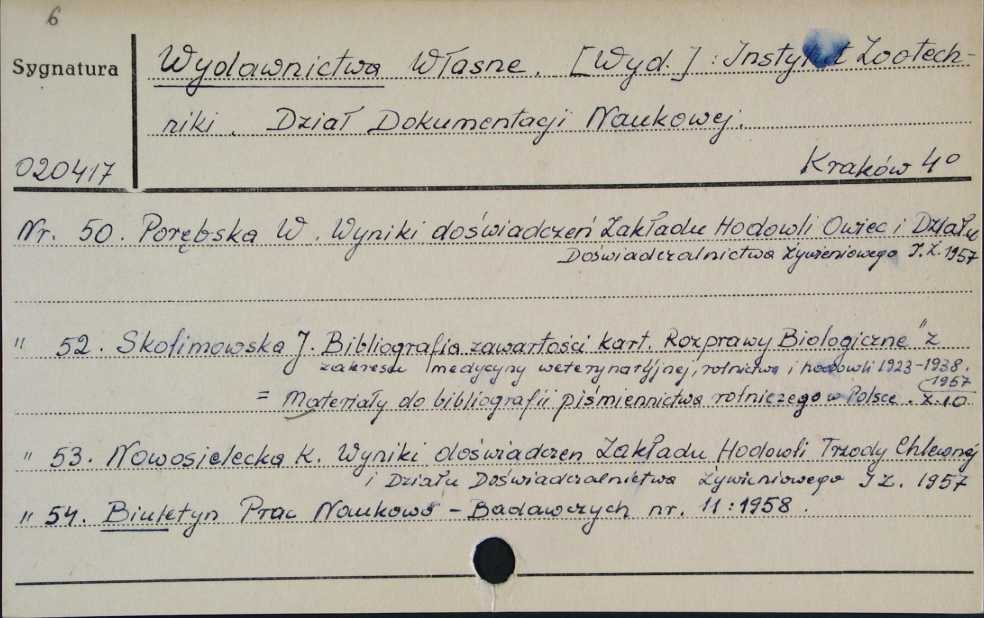 6
Sygnatura
Wydawnictwa Własne. [Wyd.]: Instytut Zootech-
niki. Dział Dokumentacji Naukowej.
020417
Kraków 4°
Nr. 50. Porębska W. Wyniki doświadczeń Zakładu Hodowli Owiec i Działu
Doświadczalnictwa Żywieniowego I.Z. 1957
" 52. Skolimowska J. Bibliografia zawartości kart. Rozprawy Biologiczne" z
zakresu medycyny weterynaryjnej, rolnictwa i hodowli 1923-1938.
1957
= Materiały do bibliografii piśmiennictwa rolniczego w Polsce. Z. 10
" 53. Nowosielecka K. Wyniki doświadczen Zakładu Hodowli Trzody Chlewnej
i Działu Doświadczalnictwa Żywieniowego IZ. 1957
" 54. Biuletyn Prac Naukowo - Badawczych nr. 11:1958.